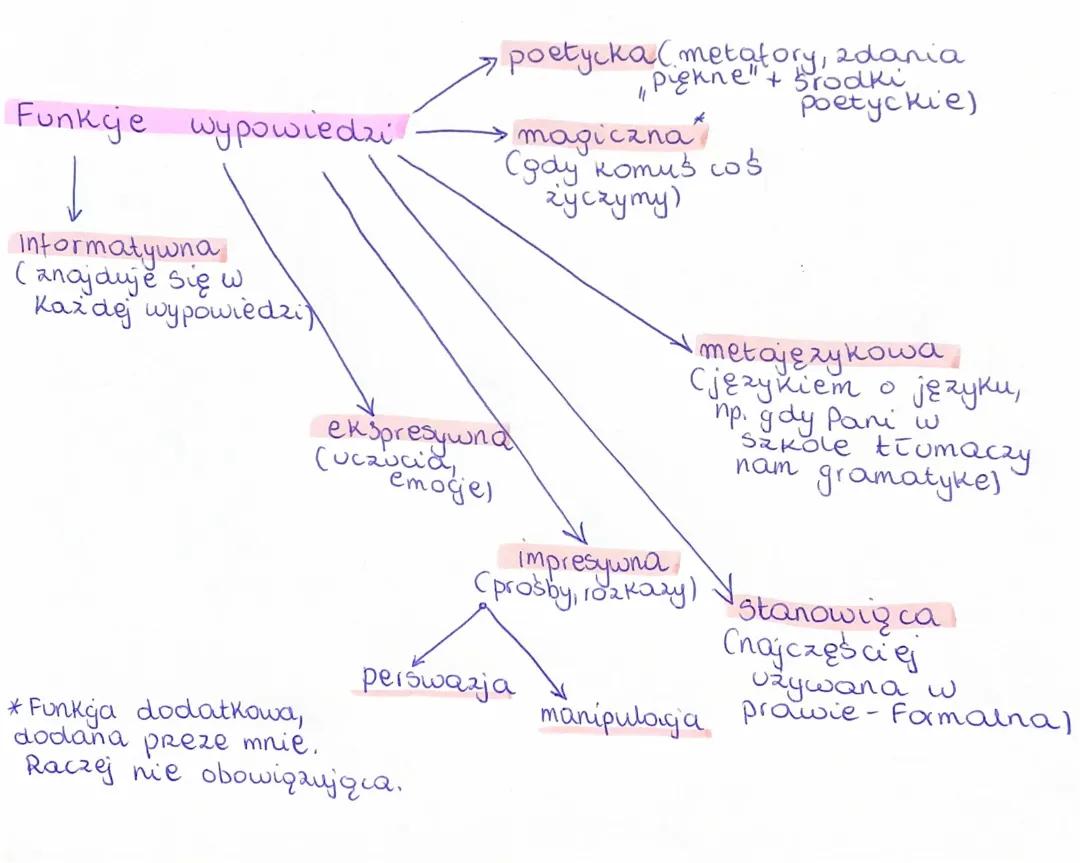 Funkcje wypowiedzi
poetycka (metafory, zdania
„piękne" + środki
poetyckie)
magiczna*
(gdy komuś coś
życzymy)
informatywna
(znajduje się w
każdej wypowiedzi)
metajęzykowa
(językiem o języku,
np. gdy Pani w
szkole tłumaczy
nam gramatykę)
ekspresywna
(uczucia,
emocje)
impresywna
(prośby, rozkazy)
perswazja
manipulacja
stanowiąca
(najczęściej
używana w
prawie - formalna)
* Funkcja dodatkowa,
dodana preze mnie.
Raczej nie obowiązująca.